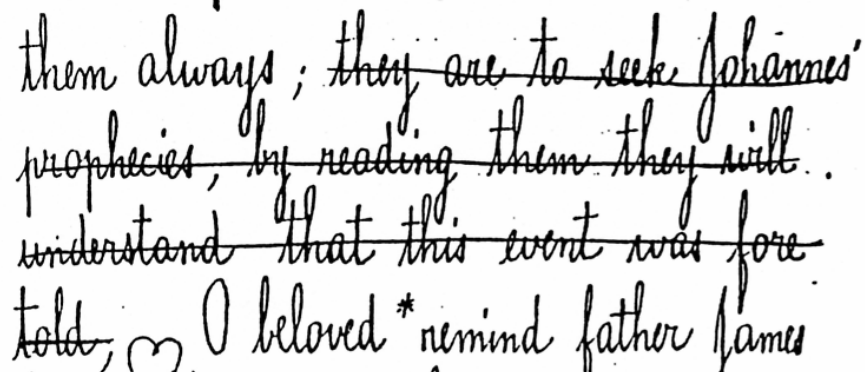 them always; they are to seek Johannes'
prophecies, by reading them they will
understand that this event was fore
told, ♡ O beloved *remind father James